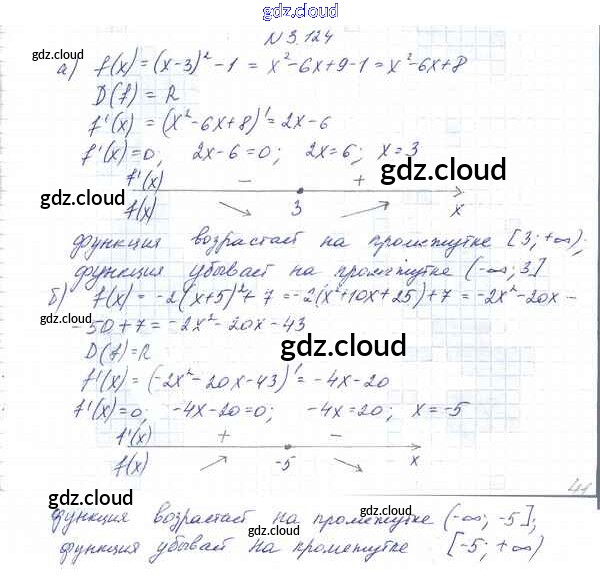 gdz.cloud
N 3.124
gdz.cloud
а) f(x) = (x-3)² - 1 = x² - 6x + 9 - 1 = x² - 6x + 8
D(f) = R
gdz.cloud
f'(x) = (x² - 6x + 8)' = 2x - 6
f'(x) = 0; 2x - 6 = 0; 2x = 6; x = 3
gdz.cloud
f'(x) - +
gdz.cloud
f(x) 3 x
функция возрастает на промежутке [3; +∞);
функция убывает на промежутке (-∞; 3]
gdz.cloud
б) f(x) = -2(x+5)² + 7 = -2(x² + 10x + 25) + 7 = -2x² - 20x -
- 50 + 7 = -2x² - 20x - 43
gdz.cloud
D(f) = R
f'(x) = (-2x² - 20x - 43)' = -4x - 20
f'(x) = 0; -4x - 20 = 0; -4x = 20; x = -5
gdz.cloud
f'(x) + -
f(x) -5 x
41
gdz.cloud
gdz.cloud
функция возрастает на промежутке (-∞; -5];
gdz.cloud
функция убывает на промежутке [-5; +∞)
gdz.cloud